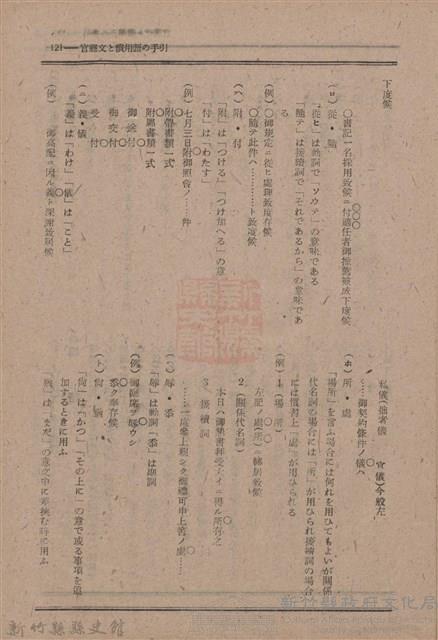 121—官廳文と慣用語の手引
下度候
〇書記一名採用致候ニ付適任者御推薦被成下度候
(ロ) 從・隨
「從ヒ」は動詞で「ソウテ」の意味である
「隨テ」は接續詞で「それであるから」の意味である
(例) 〇御規定ニ從ヒ處理致度存候
〇隨テ此件ハ……ト致度候
(ハ) 附・付
「附」は「つける」「つけ加へる」の意
「付」は「わたす」
(例) 七月三日附御照會ノ……件
附帶書類一式
附屬書類一式
御送付
御交付
受付
(ニ) 義・儀
「義」は「わけ」「儀」は「こと」
(例) 御高配ニ因ル義ト深謝致居候
私儀(拙者儀 官儀)今般左
……御契約條件ノ儀ハ
(ホ) 所・處
「場所」を言ふ場合には何れを用ひてもよいが關係
代名詞の場合には「所」が用ひられ接續詞の場合
には慣習上「處」が用ひられる
(例) 1、(場所)
左記ノ處(所)ニ轉居致候
2、(關係代名詞)
本日ハ御葉書拜受
3、接續詞
……一度參上親シク御禮可申上筈ノ處……
(ヘ) 辱・忝
「辱」は動詞「忝」は副詞
(例) 御臨席ヲ辱ウシ
忝ク奉存候
(ト) 尚・猶
「尚」は「かつ」「その上に」の意で或る事項を追
加するときに用ふ
「猶」は「まだ」の意で中に挿む時に用ふ
新竹縣縣史館
新竹縣政府文化局